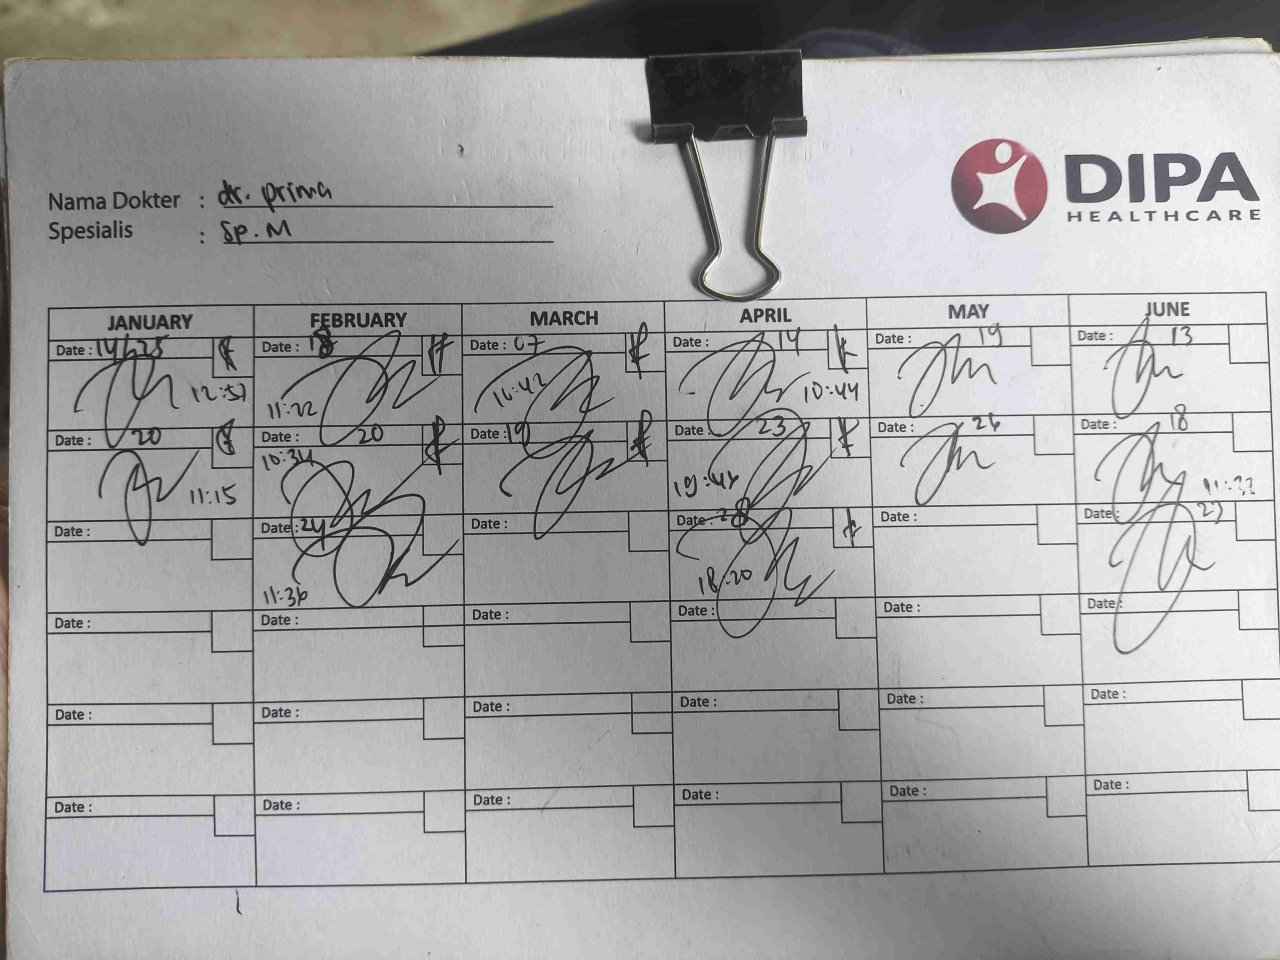 DIPA
HEALTHCARE
Nama Dokter : dr. prima
Spesialis : Sp. M
JANUARY FEBRUARY MARCH APRIL MAY JUNE
Date : 14/1 25 Date : 18 Date : 07 Date : 14 Date : 19 Date : 13
12:57 11:22 10:44
Date : 20 Date : 20 Date : 19 Date : 23 Date : 26 Date : 18
11:15 10:34
Date : Date : 24 Date : Date : 28 Date : Date :
11:36 18:20
Date : Date : Date : Date : Date : Date :
Date : Date : Date : Date : Date : Date :
Date : Date : Date : Date : Date : Date :